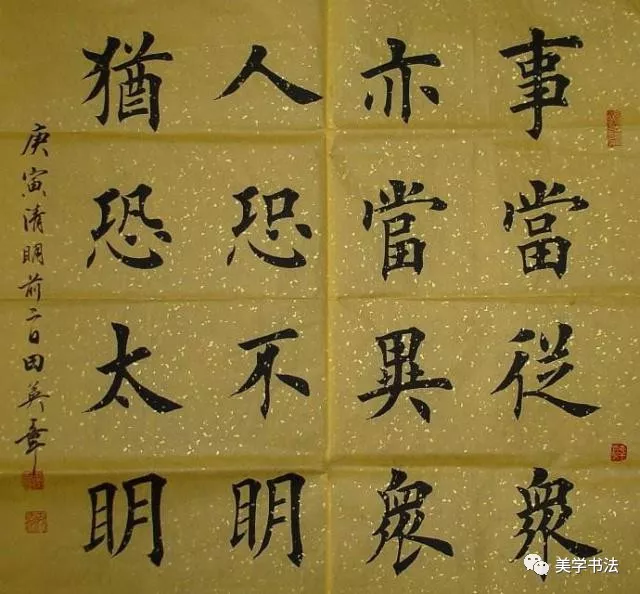 事當從衆
亦當異衆
人恐不明
猶恐太明
庚寅清明前二日田英章
美学书法